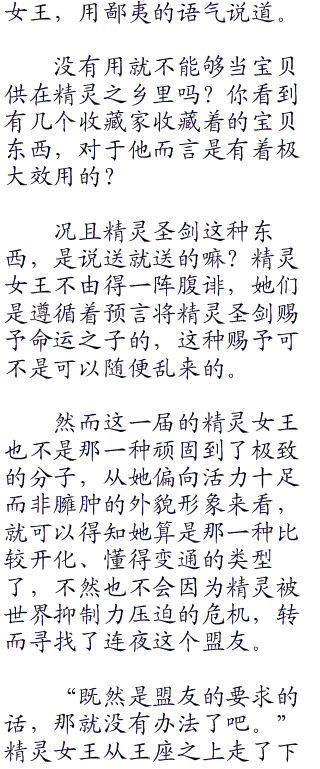 女王，用鄙夷的语气说道。
没有用就不能够当宝贝
供在精灵之乡里吗？你看到
有几个收藏家收藏着的宝贝
东西，对于他而言是有着极
大效用的？
况且精灵圣剑这种东
西，是说送就送的嘛？精灵
女王不由得一阵腹诽，她们
是遵循着预言将精灵圣剑赐
予命运之子的，这种赐予可
不是可以随便乱来的。
然而这一届的精灵女王
也不是那一种顽固到了极致
的分子，从她偏向活力十足
而非臃肿的外貌形象来看，
就可以得知她算是那一种比
较开化、懂得变通的类型
了，不然也不会因为精灵被
世界抑制力压迫的危机，转
而寻找了连夜这个盟友。
“既然是盟友的要求的
话，那就没有办法了吧。”
精灵女王从王座之上走了下